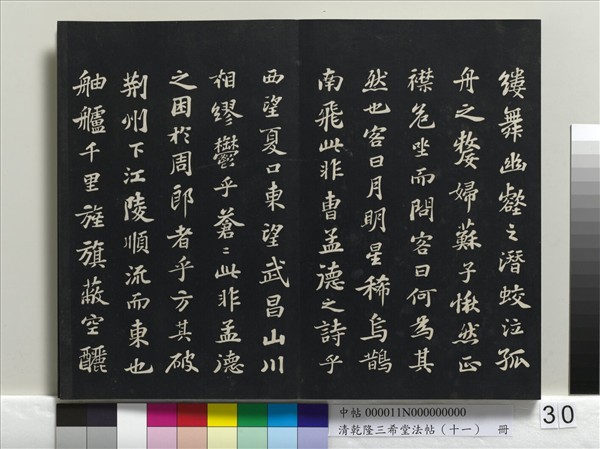 縷舞幽壑之潛蛟泣孤
舟之嫠婦蘇子愀然正
襟危坐而問客曰何為其
然也客曰月明星稀烏鵲
南飛此非曹孟德之詩乎
西望夏口東望武昌山川
相繆鬱乎蒼〻此非孟德
之困於周郎者乎方其破
荊州下江陵順流而東也
舳艫千里旌旗蔽空釃
中帖 000011N000000000
清乾隆三希堂法帖（十一） 冊
30